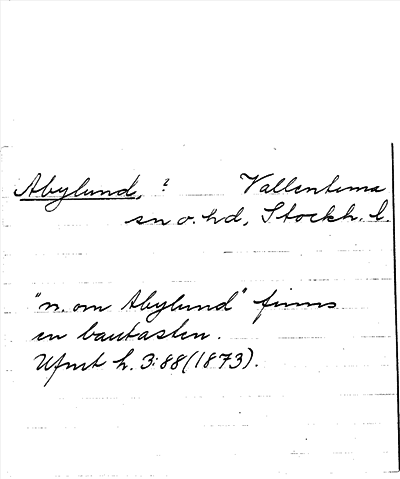 Abylund, ? Vallentuna
sn o. hd, Stockh. l.
"n. om Abylund" finns
en bautasten.
Ufmt h. 3:88 (1873).